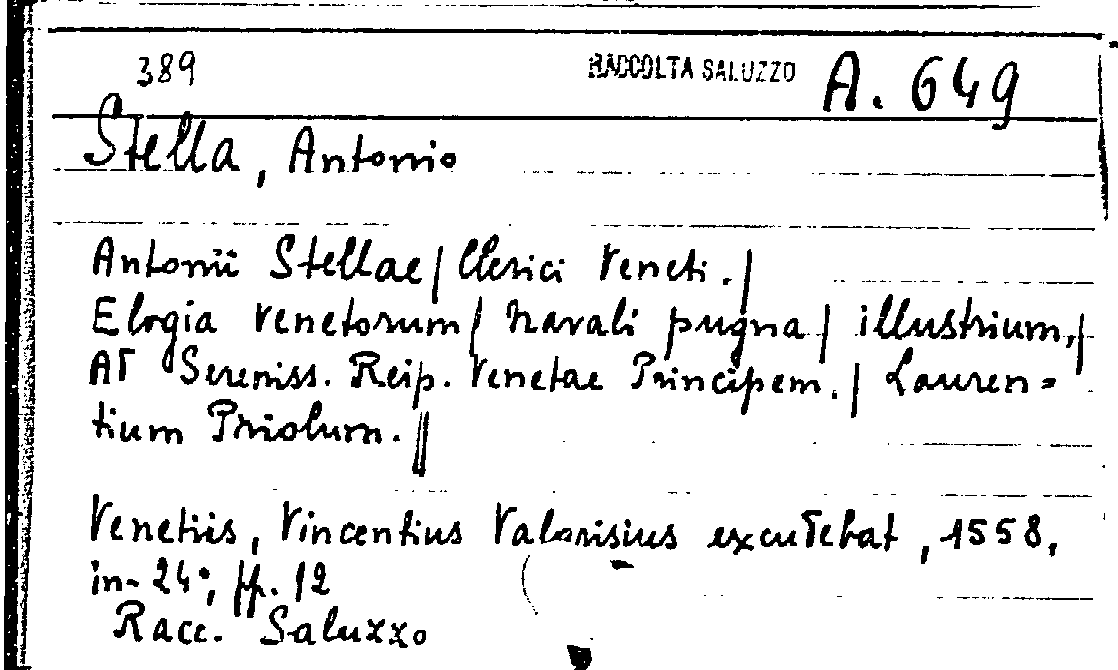 389 RACCOLTA SALUZZO A. 649
Stella, Antonio
Antonii Stellae / Clerici Veneti. /
Elogia Venetorum / navali pugna / illustrium. /
AT Sereniss. Reip. Venetae Principem. / Lauren=
tium Priolum. //
Venetiis, Vincentius Valgrisius excudebat, 1558,
in-24°, pp. 12
Racc. Saluzzo